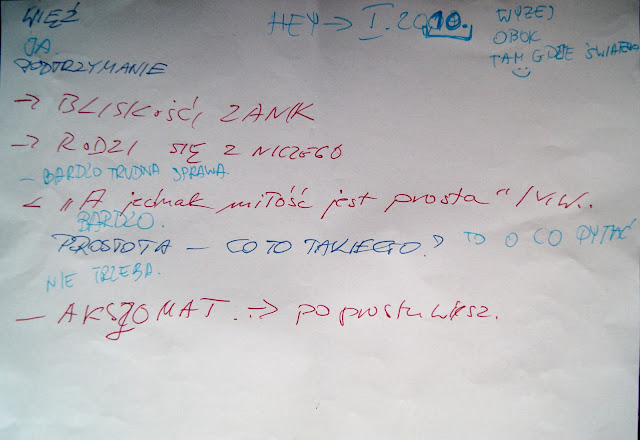 WIĘŹ
JA.
PODTRZYMANIE
HEY → I. 2010.
WYŻEJ
OBOK
TAM GDZIE ŚWIATEŁKO
→ BLISKOŚĆ, ZANIK
→ RODZI SIĘ Z NICZEGO
– BARDZO TRUDNA SPRAWA.
< „A jednak miłość jest prosta" / V.W.
BARDZO.
PROSTOTA – CO TO TAKIEGO? TO O CO PYTAĆ
NIE TRZEBA.
– AKSJOMAT. → po prostu wiesz.